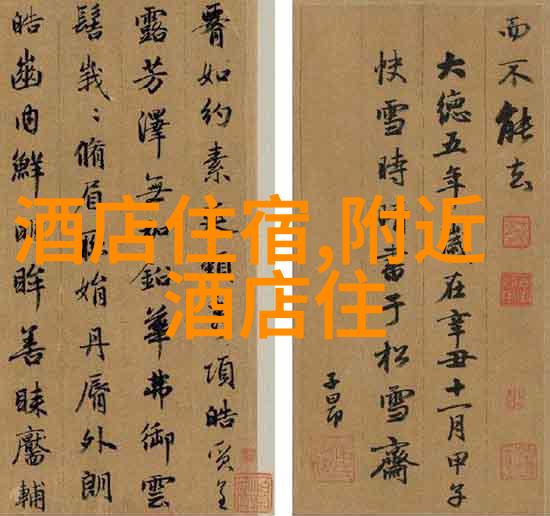 酒店住宿,附近
酒店住
如約素延項皓質呈
露芳澤無加鉛華弗御雲
髻峩〻脩眉聯娟丹脣外朗
皓齒内鮮明眸善睞靨輔
而不能去
大德五年歲在辛丑十一月甲子
快雪時晴書于松雪齋
子昂